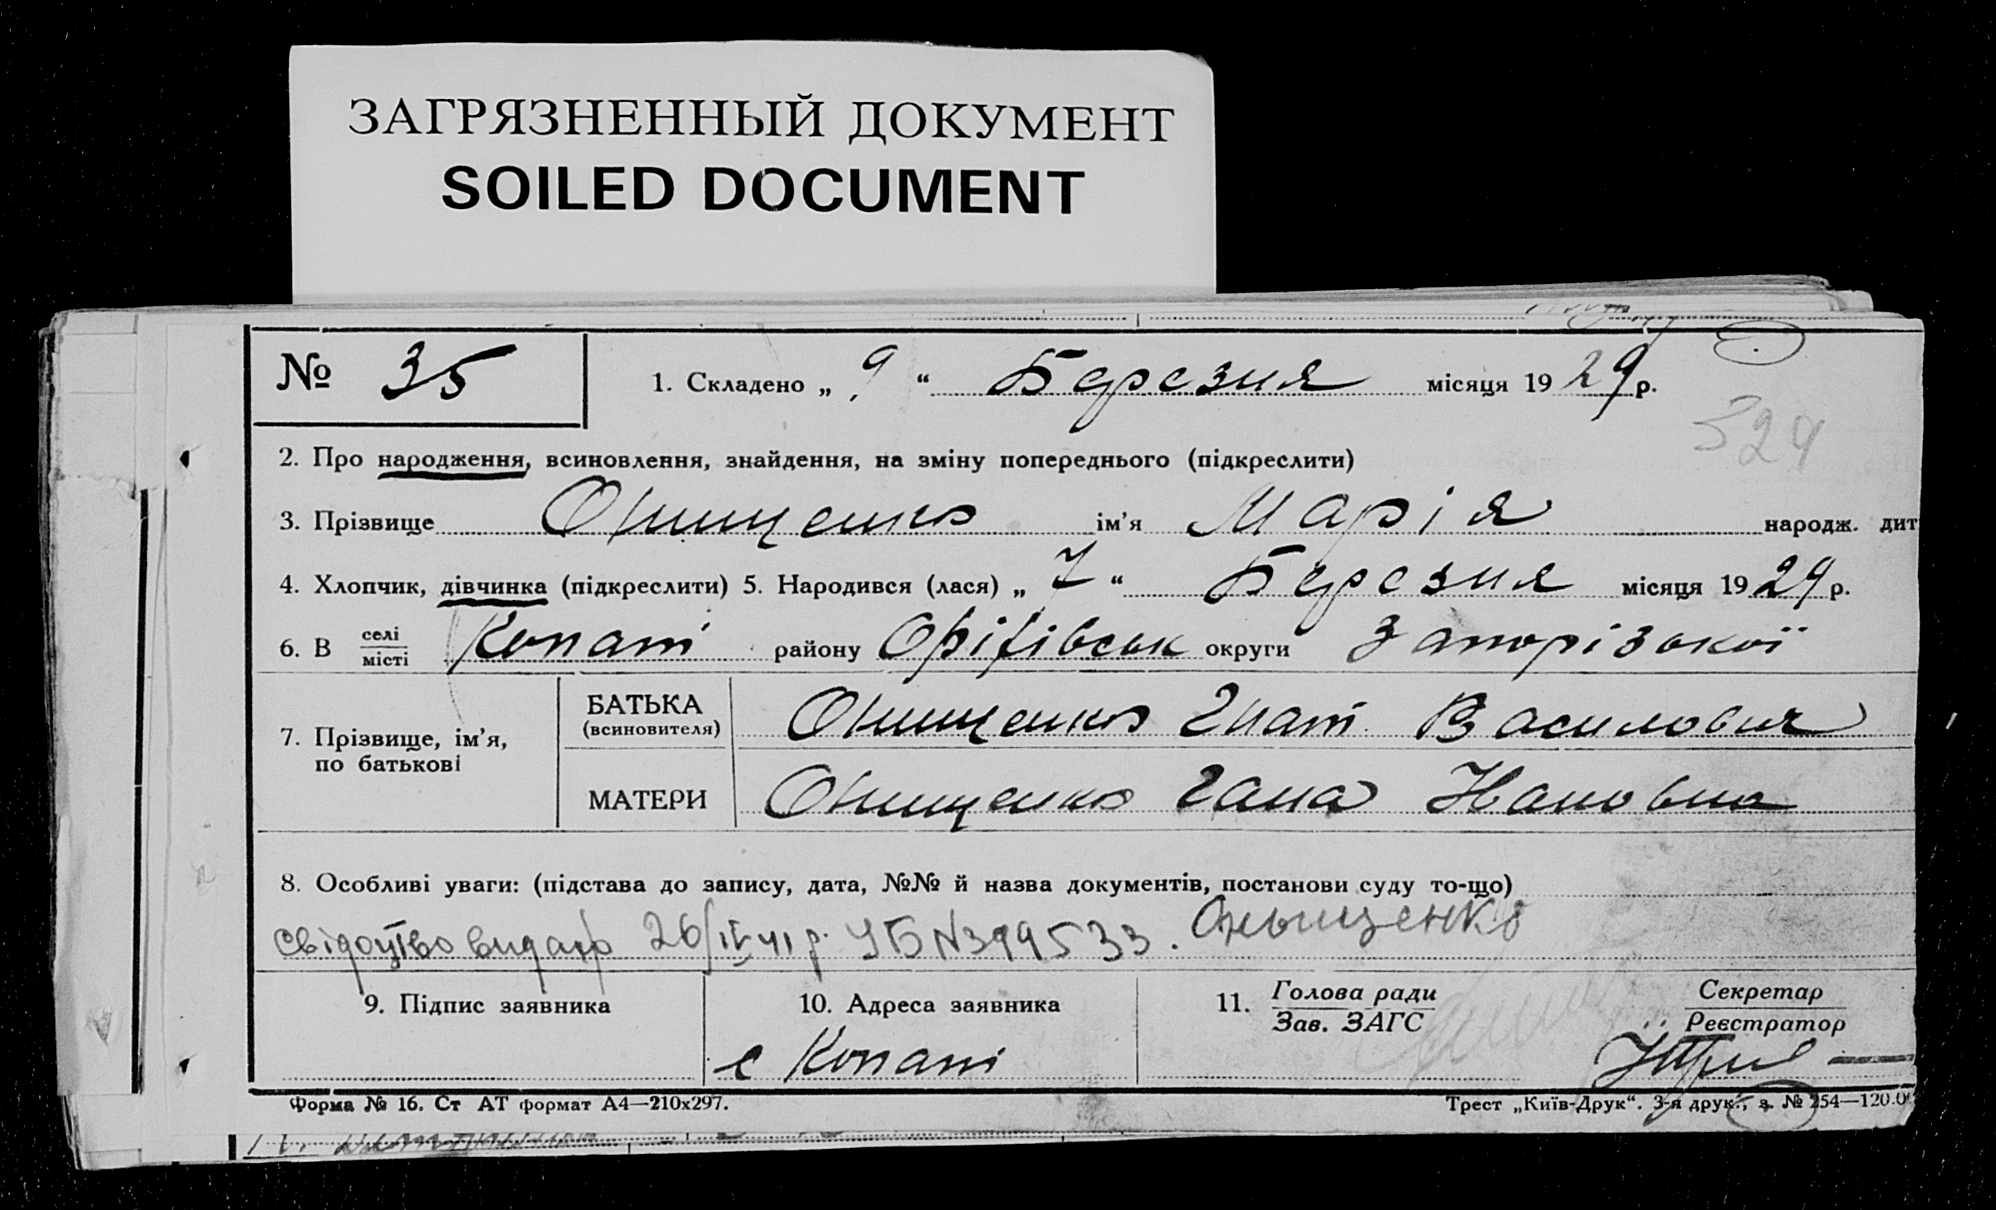 ЗАГРЯЗНЕННЫЙ ДОКУМЕНТ
SOILED DOCUMENT
№ 35
1. Складено „ 9 “ Березня місяця 1929 р.
324
2. Про народження, всиновлення, знайдення, на зміну попереднього (підкреслити)
3. Прізвище Онищенко ім’я Марія народж. дит
4. Хлопчик, дівчинка (підкреслити) 5. Народився (лася) „ 7 “ Березня місяця 1929 р.
6. В селі/місті Копані району Оріхівськ округи Запорізької
7. Прізвище, ім’я, по батькові
БАТЬКА (всиновителя) Онищенко Гнат Василович
МАТЕРИ Онищенко Гана
8. Особливі уваги: (підстава до запису, дата, №№ й назва документів, постанови суду то-що)
свідоцтво видано 26/IV 41 р. УБ N 399533. Онищенко
9. Підпис заявника
10. Адреса заявника
11. Голова ради / Зав. ЗАГС
Секретар / Реєстратор
с Копані
Форма № 16. Ст АТ формат А4—210х297.
Трест „Київ-Друк“. 3-я друк., з. № 254—120.0